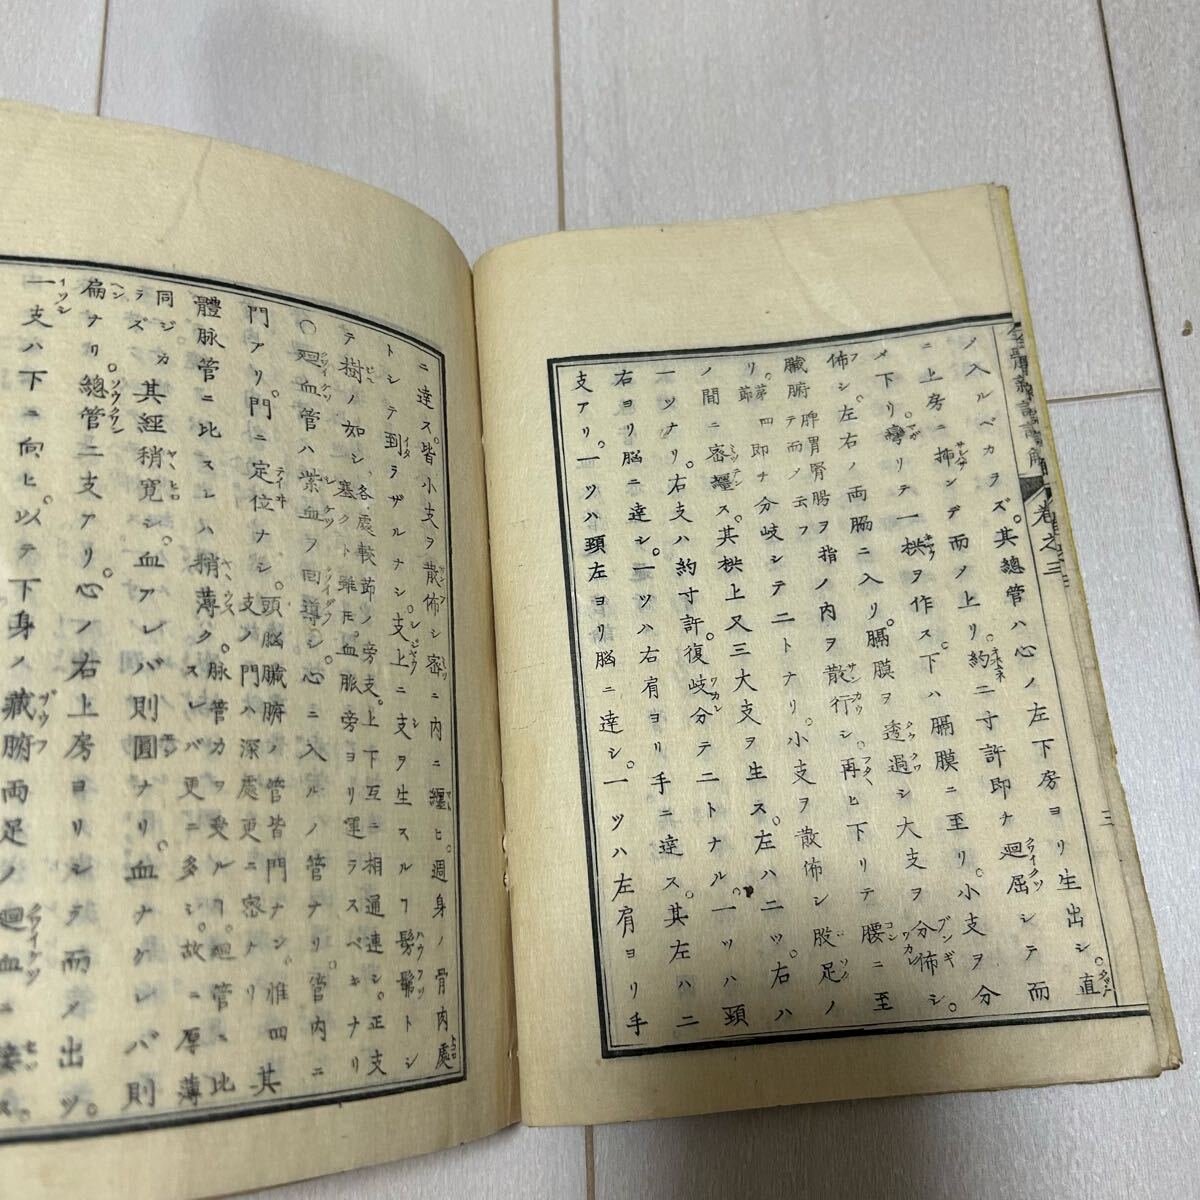 全體新論譯解 卷之三
三
ノ入ルベカラズ。其總管ハ心ノ左下房ヨリ生出シ。直
ニ上房ニ挿ンデ而ノ上リ。約二寸許即ナ廻屈シテ而
メ下リ。彎リテ一栱ヲ作ス。下ハ膈膜ニ至リ。小支ヲ分
佈シ。左右ノ両脇ニ入リ。膈膜ヲ透過シ大支ヲ分佈シ。
臓腑 脾胃腎腸ヲ指ノ内ヲ散行シ。再ヒ下リテ腰ニ至
テ而ノ云フ
リ。第四即ナ分岐シテ二トナリ。小支ヲ散佈シ股足ノ
ノ間ニ密纒ス。其栱上又三大支ヲ生ス。左ハ二ツ。右ハ
一ツナリ。右支ハ約寸許。復岐分テ二トナル。一ツハ頸
右ヨリ脳ニ達シ。一ツハ右肩ヨリ手ニ達ス。其左ハ二
支アリ。一ツハ頸左ヨリ脳ニ達シ。一ツハ左肩ヨリ手
ニ達ス。皆小支ヲ散佈シ密ニ内ニ纒ヒ。週身ノ骨肉處
トシテ到ラザルナシ。支上ニ支ヲ生スルヿ髣髴トシ
テ樹ノ如シ。各處較節ノ旁支。上下互ニ相通連シ。正支
塞クト雖𪜈。血脈旁ヨリ運ラスベキナリ
○廻血管ハ紫血ヲ回導シ。心ニ入ルノ管ナリ。管内ニ
門アリ。門ニ定位ナシ。頭脳臓腑ノ管皆門ナシ。惟四
支ノ門ハ深處更ニ密ナリ 其
體脉管ニ比スレハ稍薄ク。脉管カヲ受ル 廻管ニ比
スレバ更ニ多シ。故ニ厚薄
同ジカラズ 其經稍寛シ。血アレバ則圓ナリ。血ナケレバ則
扁ナリ。總管二支アリ。心ノ右上房ヨリシテ而メ出ツ。
一支ハ下ニ向上。以テ下身ノ藏腑両足ノ廻血ニ接ス。